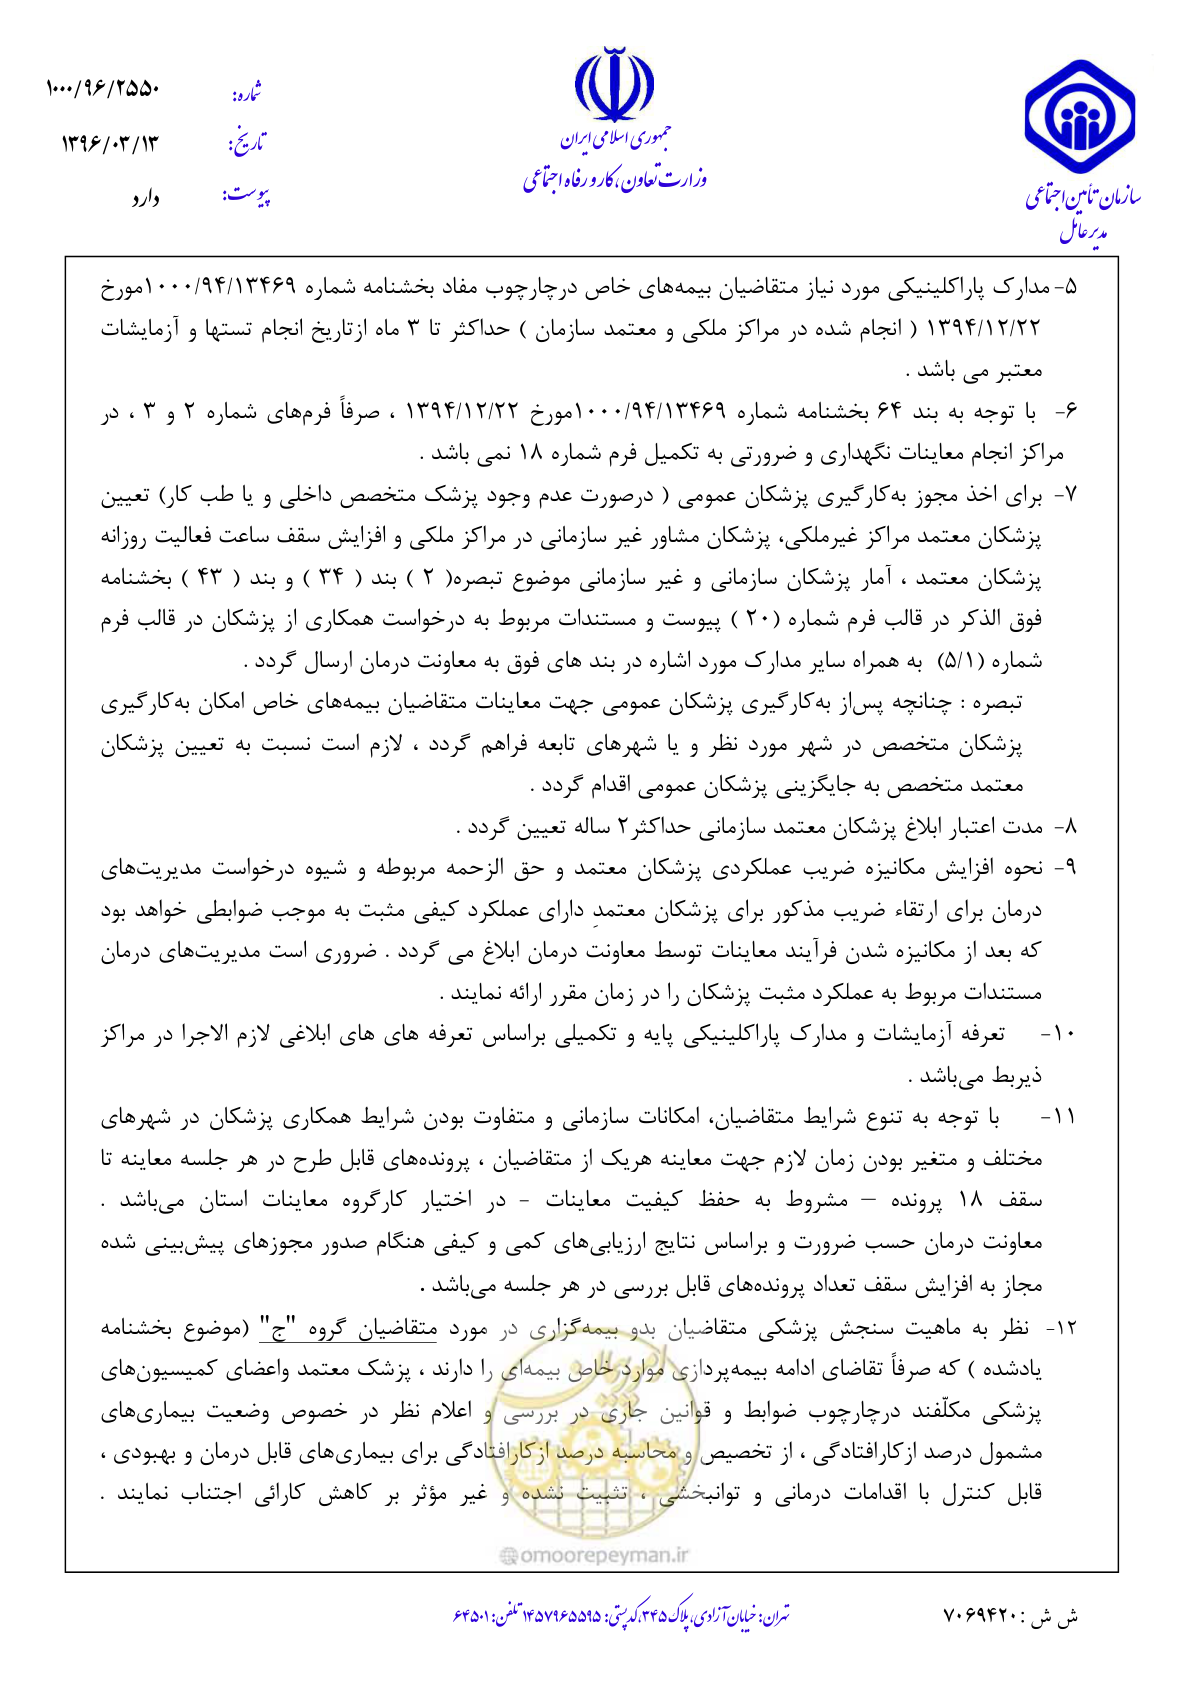 جمهوری اسلامی ایران
وزارت تعاون ،کار و رفاه اجتماعی
سازمان تأمین اجتماعی
مدیرعامل
شماره: ۱۰۰۰/۹۶/۲۵۵۰
تاریخ: ۱۳۹۶/۰۳/۱۳
پیوست: دارد
۵- مدارک پاراکلینیکی مورد نیاز متقاضیان بیمه‌های خاص درچارچوب مفاد بخشنامه شماره ۱۰۰۰/۹۴/۱۳۴۶۹مورخ
۱۳۹۴/۱۲/۲۲ ( انجام شده در مراکز ملکی و معتمد سازمان ) حداکثر تا ۳ ماه ازتاریخ انجام تستها و آزمایشات
معتبر می باشد .
۶- با توجه به بند ۶۴ بخشنامه شماره ۱۰۰۰/۹۴/۱۳۴۶۹مورخ ۱۳۹۴/۱۲/۲۲ ، صرفاً فرم‌های شماره ۲ و ۳ ، در
مراکز انجام معاینات نگهداری و ضرورتی به تکمیل فرم شماره ۱۸ نمی باشد .
۷- برای اخذ مجوز به‌کارگیری پزشکان عمومی ( درصورت عدم وجود پزشک متخصص داخلی و یا طب کار) تعیین
پزشکان معتمد مراکز غیرملکی، پزشکان مشاور غیر سازمانی در مراکز ملکی و افزایش سقف ساعت فعالیت روزانه
پزشکان معتمد ، آمار پزشکان سازمانی و غیر سازمانی موضوع تبصره( ۲ ) بند ( ۳۴ ) و بند ( ۴۳ ) بخشنامه
فوق الذکر در قالب فرم شماره (۲۰ ) پیوست و مستندات مربوط به درخواست همکاری از پزشکان در قالب فرم
شماره (۵/۱) به همراه سایر مدارک مورد اشاره در بند های فوق به معاونت درمان ارسال گردد .
تبصره : چنانچه پس‌از به‌کارگیری پزشکان عمومی جهت معاینات متقاضیان بیمه‌های خاص امکان به‌کارگیری
پزشکان متخصص در شهر مورد نظر و یا شهرهای تابعه فراهم گردد ، لازم است نسبت به تعیین پزشکان
معتمد متخصص به جایگزینی پزشکان عمومی اقدام گردد .
۸- مدت اعتبار ابلاغ پزشکان معتمد سازمانی حداکثر۲ ساله تعیین گردد .
۹- نحوه افزایش مکانیزه ضریب عملکردی پزشکان معتمد و حق الزحمه مربوطه و شیوه درخواست مدیریت‌های
درمان برای ارتقاء ضریب مذکور برای پزشکان معتمدِ دارای عملکرد کیفی مثبت به موجب ضوابطی خواهد بود
که بعد از مکانیزه شدن فرآیند معاینات توسط معاونت درمان ابلاغ می گردد . ضروری است مدیریت‌های درمان
مستندات مربوط به عملکرد مثبت پزشکان را در زمان مقرر ارائه نمایند .
۱۰- تعرفه آزمایشات و مدارک پاراکلینیکی پایه و تکمیلی براساس تعرفه های های ابلاغی لازم الاجرا در مراکز
ذیربط می‌باشد .
۱۱- با توجه به تنوع شرایط متقاضیان، امکانات سازمانی و متفاوت بودن شرایط همکاری پزشکان در شهرهای
مختلف و متغیر بودن زمان لازم جهت معاینه هریک از متقاضیان ، پرونده‌های قابل طرح در هر جلسه معاینه تا
سقف ۱۸ پرونده – مشروط به حفظ کیفیت معاینات - در اختیار کارگروه معاینات استان می‌باشد .
معاونت درمان حسب ضرورت و براساس نتایج ارزیابی‌های کمی و کیفی هنگام صدور مجوزهای پیش‌بینی شده
مجاز به افزایش سقف تعداد پرونده‌های قابل بررسی در هر جلسه می‌باشد .
۱۲- نظر به ماهیت سنجش پزشکی متقاضیان بدو بیمه‌گزاری در مورد متقاضیان گروه "ج" (موضوع بخشنامه
یادشده ) که صرفاً تقاضای ادامه بیمه‌پردازی موارد خاص بیمه‌ای را دارند ، پزشک معتمد واعضای کمیسیون‌های
پزشکی مکلّفند درچارچوب ضوابط و قوانین جاری در بررسی و اعلام نظر در خصوص وضعیت بیماری‌های
مشمول درصد ازکارافتادگی ، از تخصیص و محاسبه درصد ازکارافتادگی برای بیماری‌های قابل درمان و بهبودی ،
قابل کنترل با اقدامات درمانی و توانبخشی ، تثبیت نشده و غیر مؤثر بر کاهش کارائی اجتناب نمایند .
@omoorepeyman.ir
ش ش : ۷۰۶۹۴۲۰
تهران: خیابان آزادی، پلاک ۳۴۵، کدپستی: ۱۴۵۷۹۶۵۵۹۵ تلفن: ۶۴۵۰۱